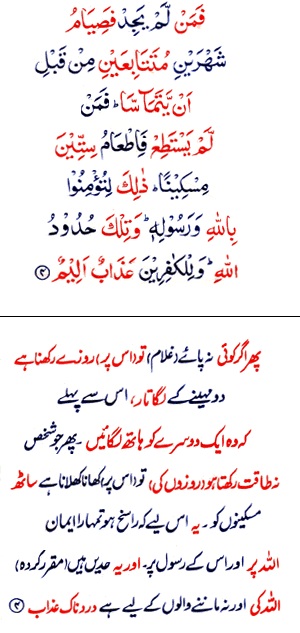 فَمَنْ لَّمْ يَجِدْ فَصِيَامُ
شَهْرَيْنِ مُتَتَابِعَيْنِ مِنْ قَبْلِ
اَنْ يَّتَمَآسَّا ؕ فَمَنْ
لَّمْ يَسْتَطِعْ فَاِطْعَامُ سِتِّيْنَ
مِسْكِيْنًا ؕ ذٰلِكَ لِتُؤْمِنُوْا
بِاللّٰهِ وَرَسُوْلِهٖ ؕ وَتِلْكَ حُدُوْدُ
اللّٰهِ ؕ وَلِلْكٰفِرِيْنَ عَذَابٌ اَلِيْمٌ ۝۴
پھر اگر کوئی نہ پائے (غلام) تو (اس پر) روزے رکھنا ہے
دو مہینے کے لگاتار، اس سے پہلے
کہ وہ ایک دوسرے کو ہاتھ لگائیں ۔ پھر جو شخص
نہ طاقت رکھتا ہو (روزوں کی) تو (اس پر) کھانا کھلانا ہے ساٹھ
مسکینوں کو ۔ یہ اس لیے کہ راسخ ہو تمہارا ایمان
اللہ پر اور اس کے رسول پر ۔ اور یہ حدیں ہیں (مقرر کردہ)
اللہ کی اور نہ ماننے والوں کے لیے ہے دردناک عذاب ۝۴